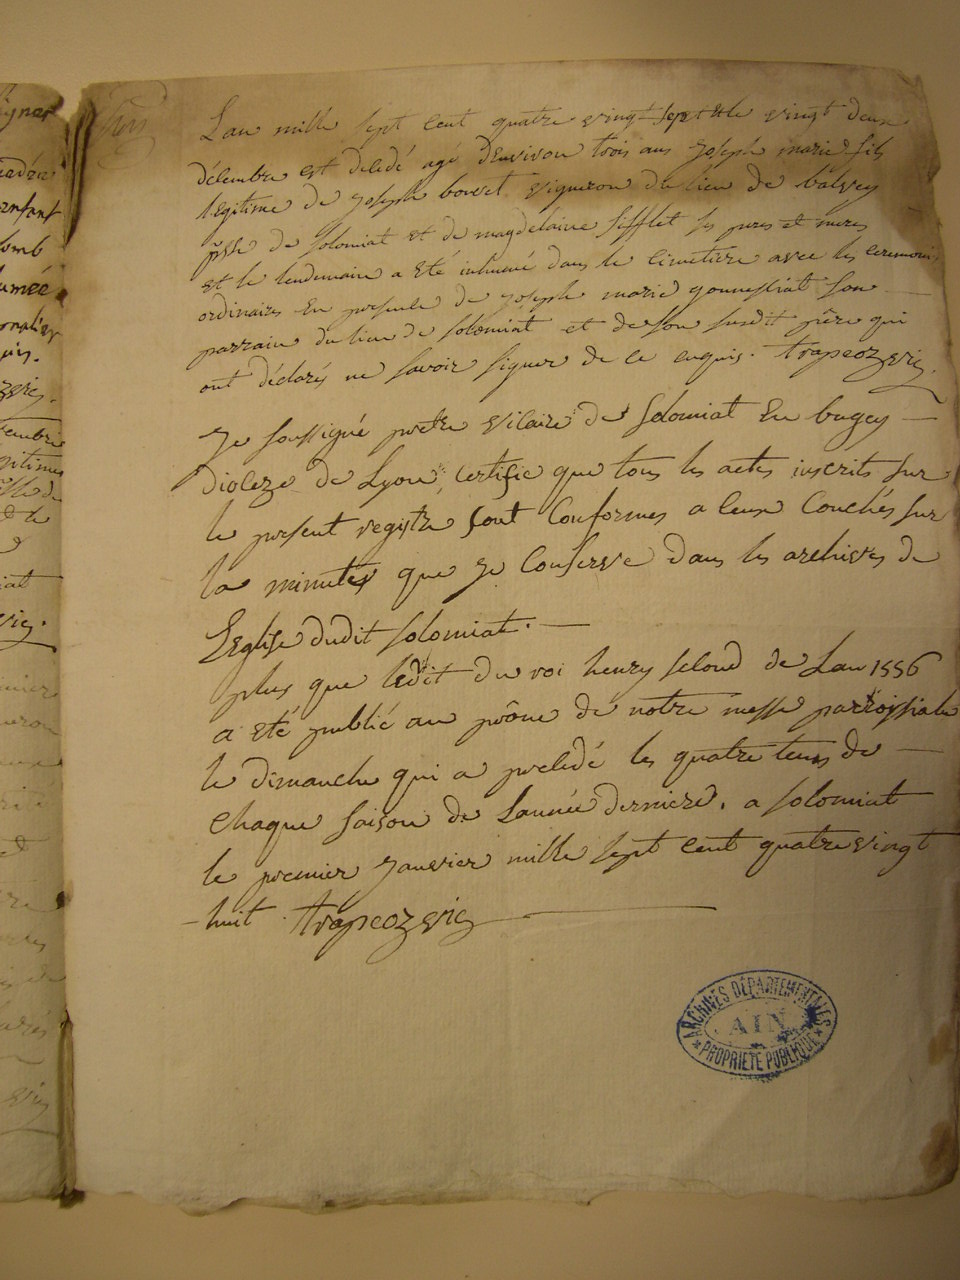 Lan mille sept cent quatre vingt sept et le vingt deux
décembre est décédé agé d'environ trois ans joseph marie fils
légitime de joseph bouvet vigneron du lieu de balvey
psse de solomiat et de magdelaine sifflet ses peres et meres
et le lendemain a été inhumé dans le cimetiere avec les ceremonies
ordinaires en presence de joseph marie gonnessiat son
parrain du lieu de solomiat et de son susdit père qui
ont déclarés ne savoir signer de ce enquis. trapeoz vic
Je soussigné pretre vicaire de solomiat en bugey
dioceze de Lyon, certifie que tous les actes inscrits sur
le present registre sont conformes a ceux couchés sur
la minutes que je conserve dans les archives de
L'église dudit solomiat.
plus que lédit du roi henry second de Lan 1556
a été publié au prône de notre messe parroissiale
le dimanche qui a precedé les quatre tems de
chaque saison de L'année derniere. a solomiat
le premier janvier mille sept cent quatre vingt
huit. trapeoz vic
ARCHIVES DÉPARTEMENTALES
AIN
PROPRIETE PUBLIQUE
igner
enfant
omb
umée
vic.
embre
gitime
iat
vic.